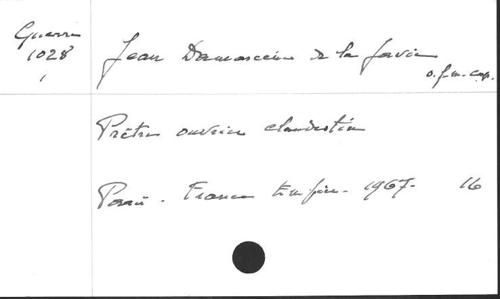 Guerre
1028
Jean Damascène de la Javie
o.f.m. cap.
Prêtre ouvrier clandestin
Paris - France Empire - 1967- 16